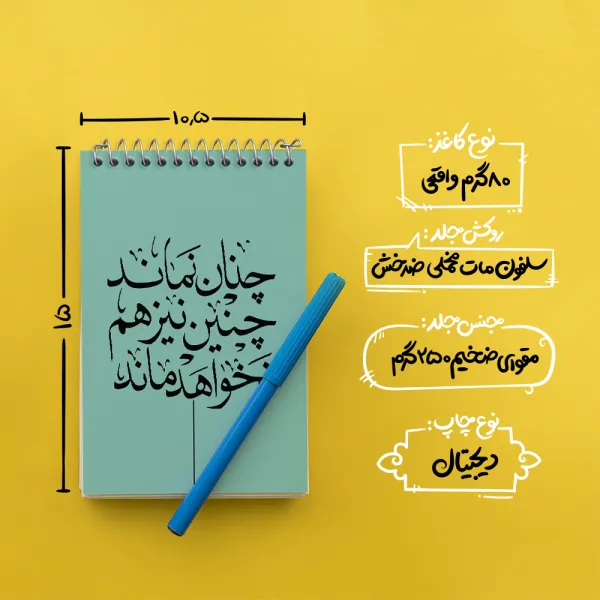 ۱۰٫۵
۱۵
چنان نماند
چنین نیز هم
نخواهد ماند
نوع کاغذ:
۸۰ گرم واقعی
روکش جلد:
سلفون مات مخملی ضدخش
جنس جلد:
مقوای ضخیم ۲۵۰ گرم
نوع چاپ:
دیجیتال